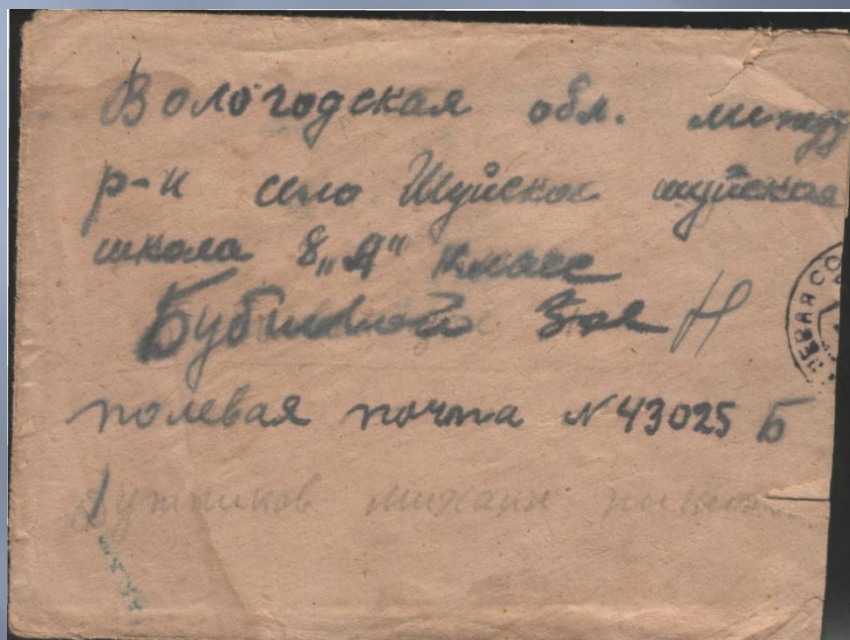 Вологодская обл. между
р-н село Шуйское шуйская
школа 8 „А" класс
Зое Н
полевая почта N 43025 Б
михаил
ЕВАЯ СО